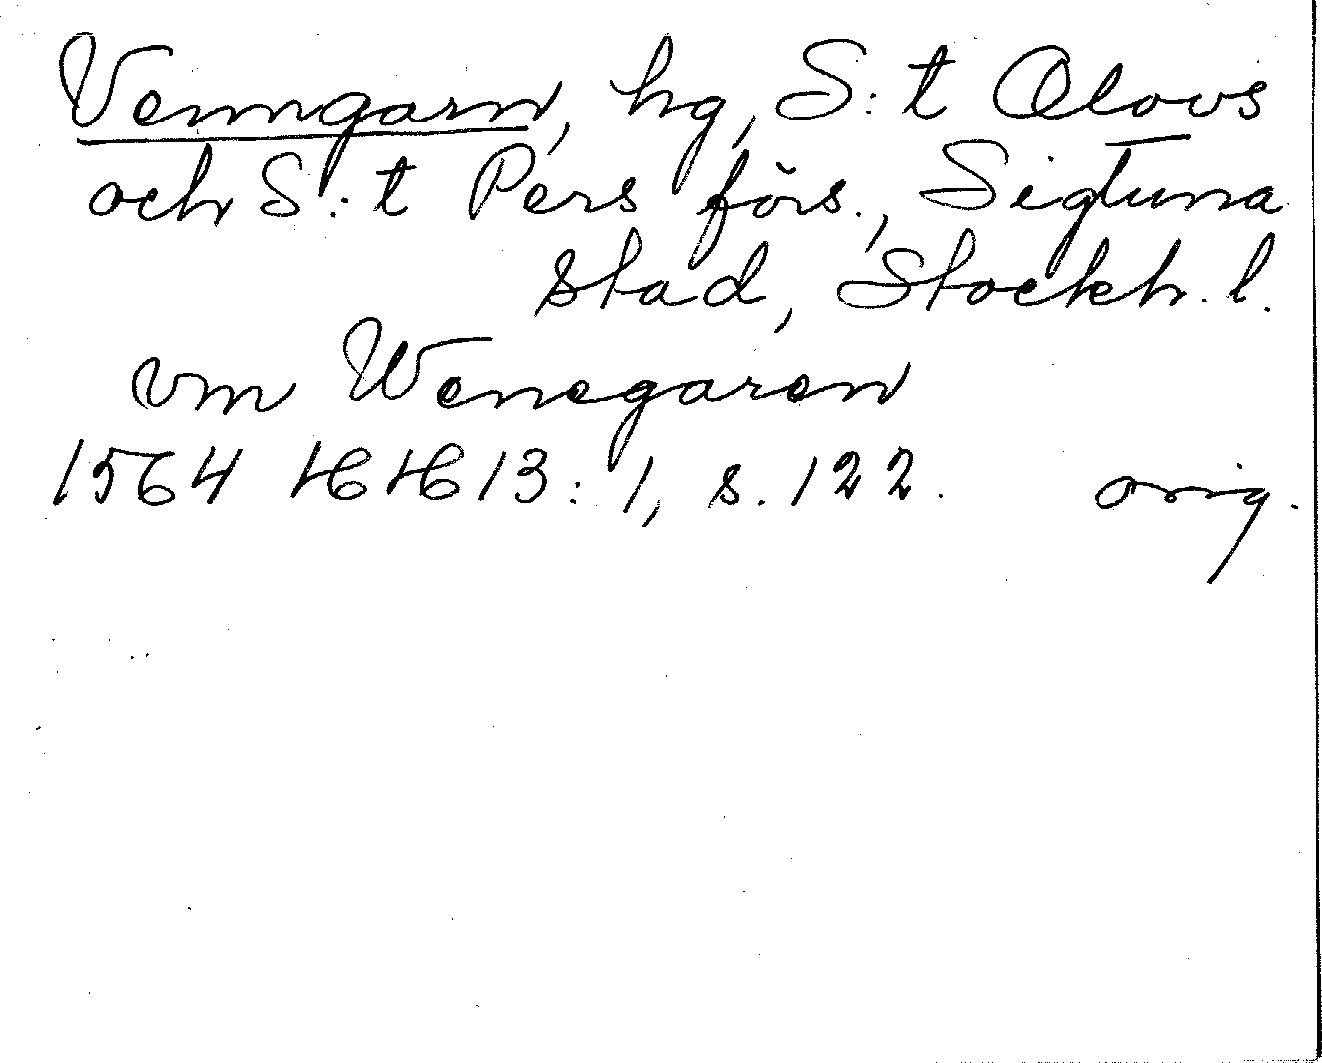 Venngarn, hg, S:t Olovs
och S:t Pers förs., Sigtuna
stad, Stockh. l.
vm Wenegaren
1564 HH 13:1, s. 122. orig.